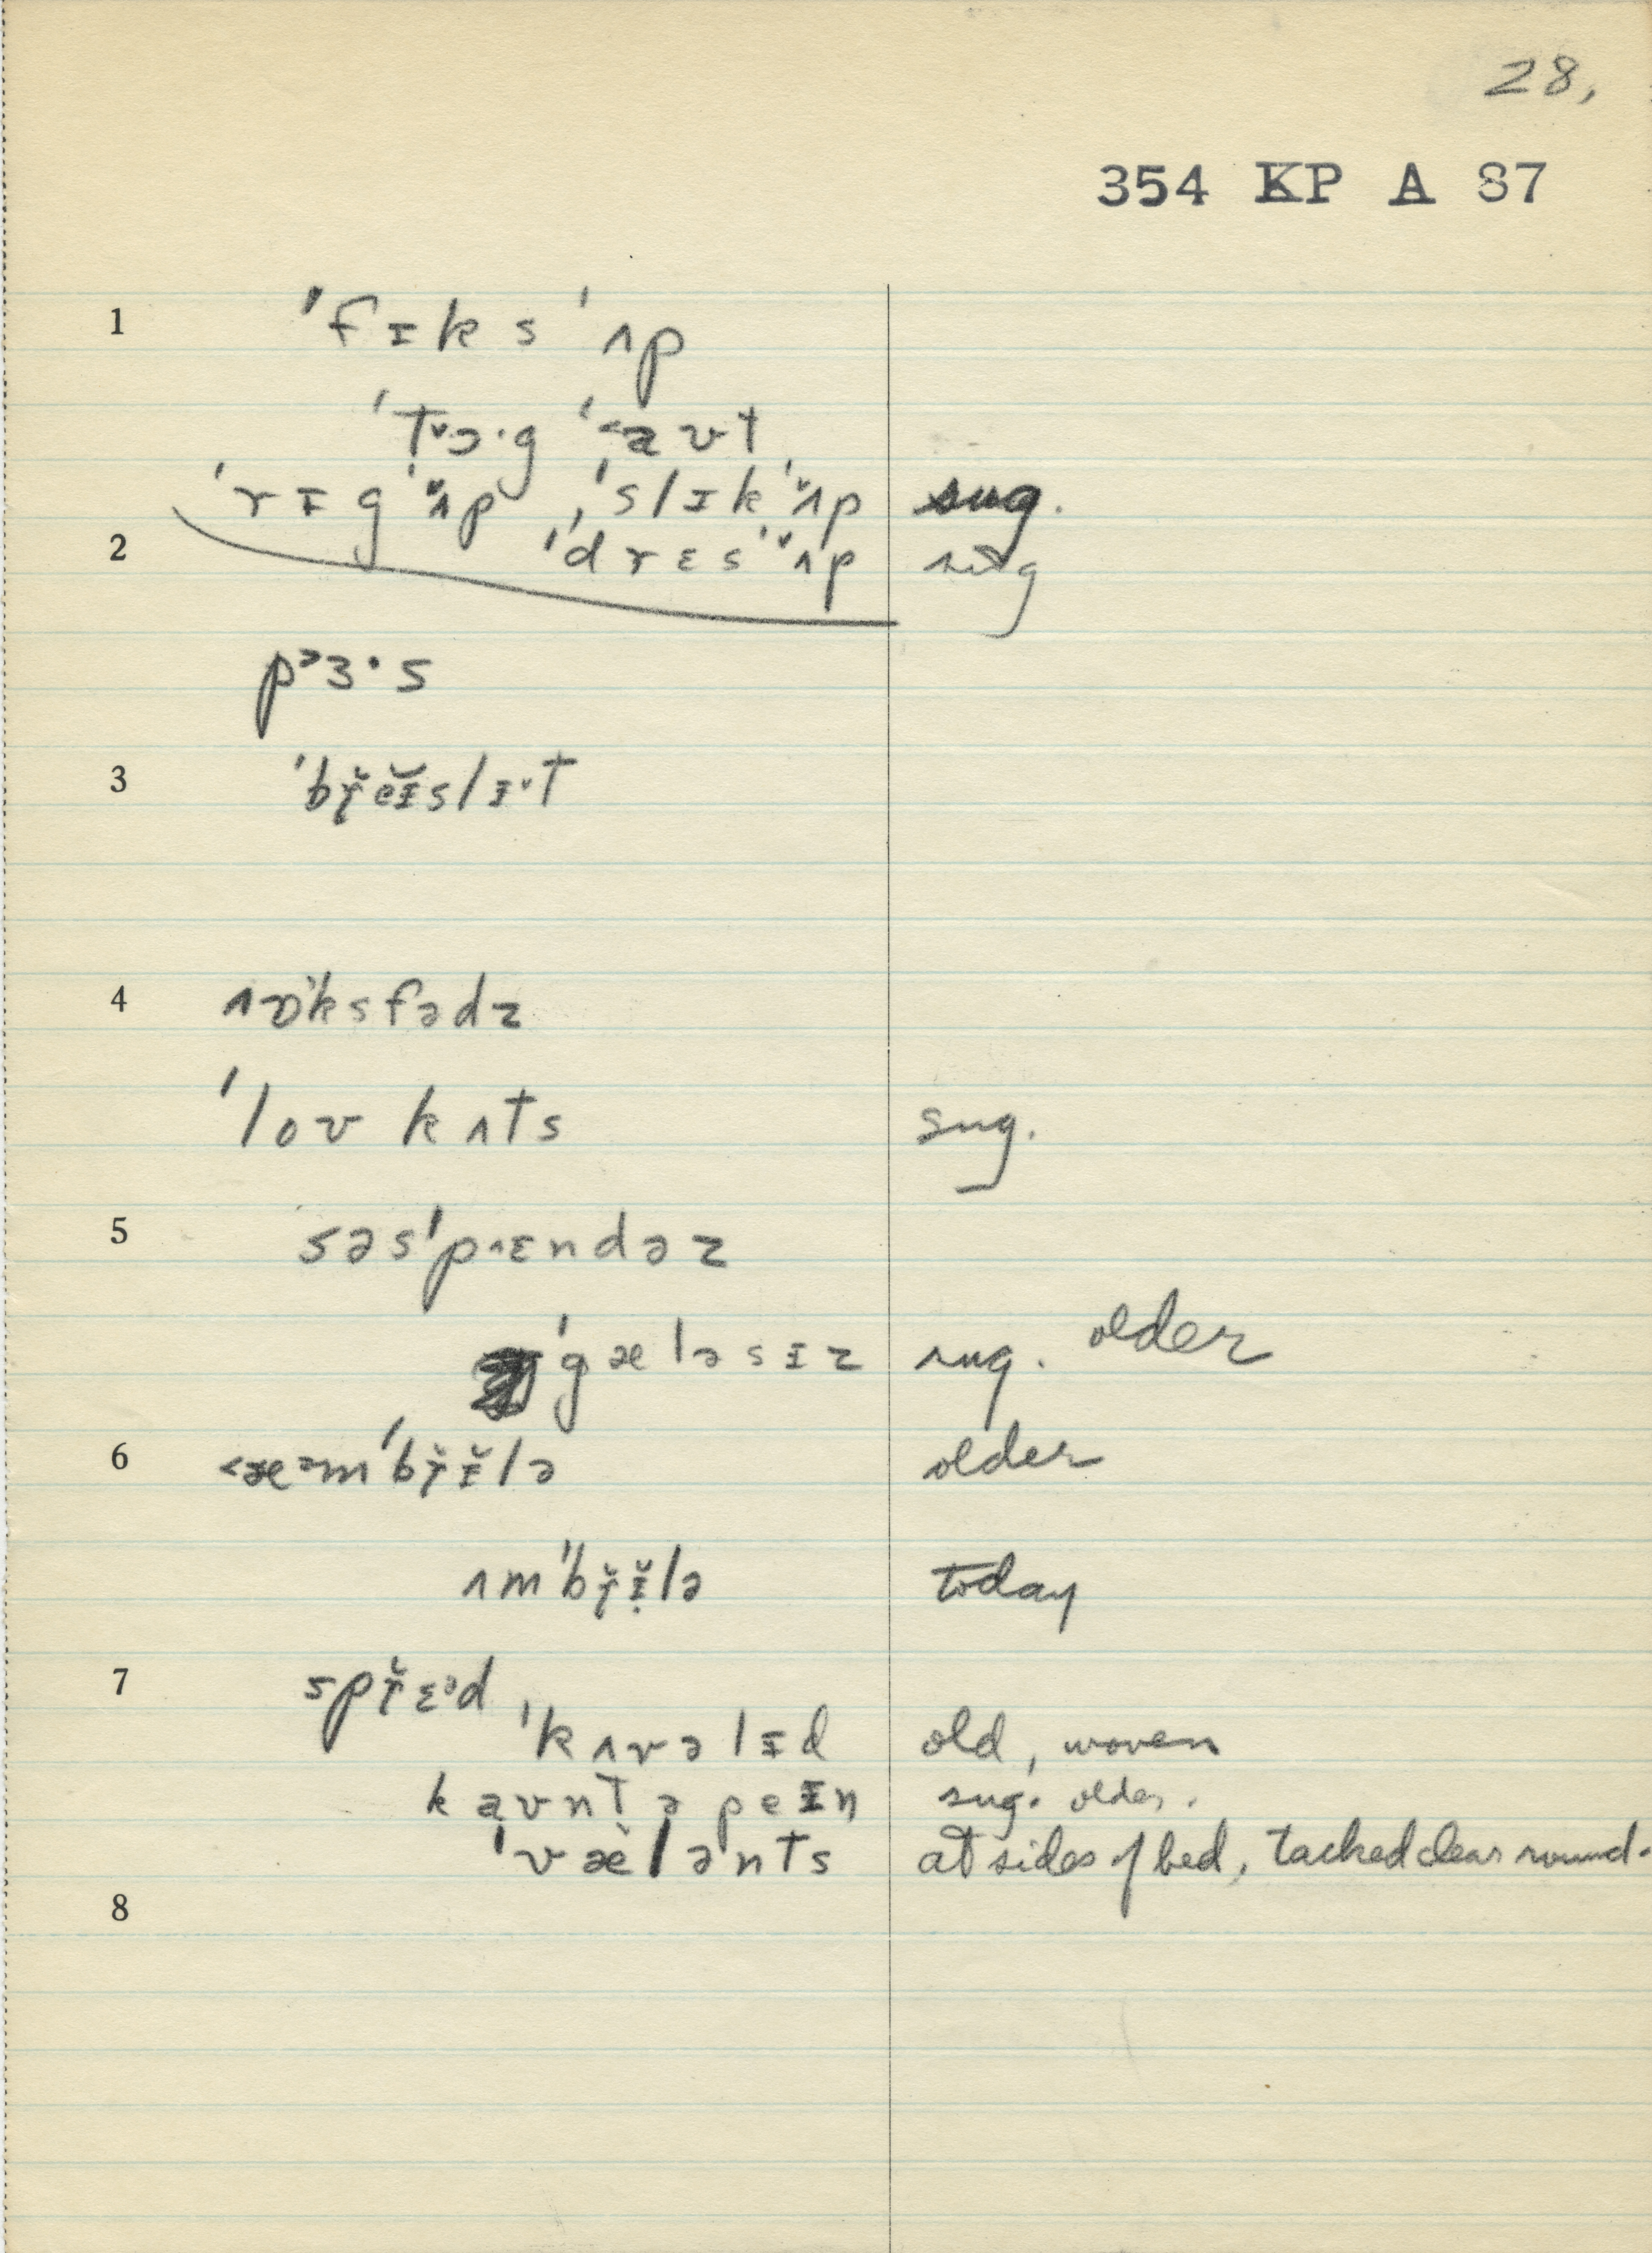 28,
354 KP A 87
1 ˈfɪks ˈʌp
ˈt˅ɔ·g ˈ˂aʊt
ˈrɪg ˈ˅ʌp, ˈslɪk ˈ˅ʌp sug.
2 ˈdrɛs ˈ˅ʌp sug
p˃ɜ·s
3 ˈbɾ̆eɪ̆slɪ˅t
4 ˈksfədz
ˈloʊ kʌts sug.
5 səsˈp˄ɛndəz
ˈgæləsɪz sug. older
6 ˂æ˃mˈbɾ̆ɪ̆lə older
ʌmˈbɾ̆ɪ̆lə today
7 spɾ̆ɛᵊd
ˈkʌvəlɪd old, woven
kaʊntəpeɪn sug. older.
ˈvælənts at sides of bed, tacked clear round.
8